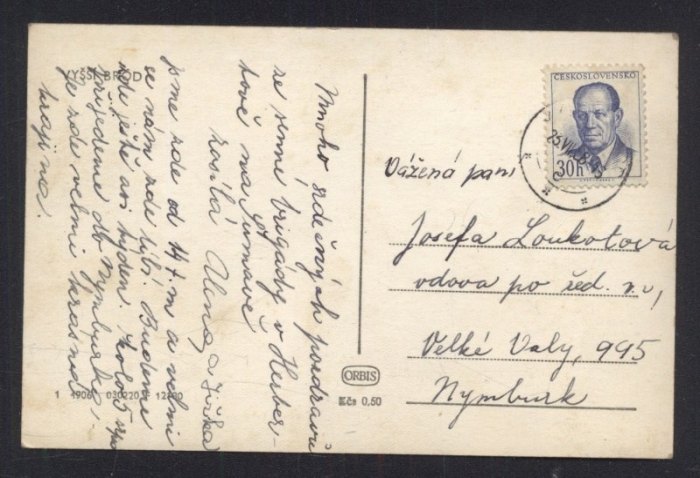 VYŠŠÍ BROD
Mnoho srdečných pozdravů
ze senné brigády v Herber-
tově na Šumavě
zasílá Alena a Jiřka
Jsme zde od 14.7.m a velmi
se nám zde líbí. Budeme
zde ještě asi týden. Kolem 5 srp
přijedeme do Nymburku,
Je zde velmi krásná
krajina.
1 4906 030220 12800
ORBIS
Kčs 0,60
ČESKOSLOVENSKO
30h
Vážená paní
Josefa Loukotová
vdova po řed. v.v,
Velké Valy, 995
Nymburk